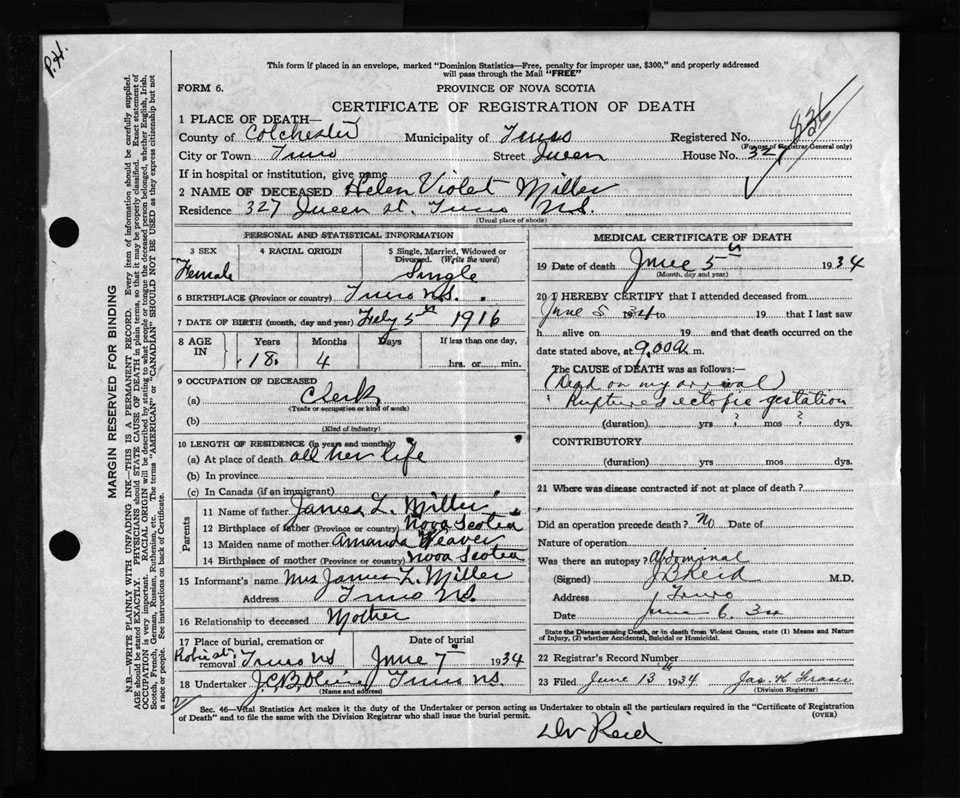 P.H.
This form if placed in an envelope, marked "Dominion Statistics—Free, penalty for improper use, $300," and properly addressed
will pass through the Mail "FREE"
FORM 6.
PROVINCE OF NOVA SCOTIA
CERTIFICATE OF REGISTRATION OF DEATH
836
1 PLACE OF DEATH—
County of Colchester Municipality of Truro Registered No.
(For use of Registrar General only)
City or Town Truro Street Queen House No. 327
If in hospital or institution, give name
2 NAME OF DECEASED Helen Violet Miller
Residence 327 Queen st. Truro N.S.
(Usual place of abode)
PERSONAL AND STATISTICAL INFORMATION
3 SEX 4 RACIAL ORIGIN 5 Single, Married, Widowed or
Divorced. (Write the word)
Female Single
6 BIRTHPLACE (Province or country) Truro N.S.
7 DATE OF BIRTH (month, day and year) Feby 5th 1916
8 AGE IN Years Months Days If less than one day,
18 4 hrs. or min.
9 OCCUPATION OF DECEASED
(a) Clerk
(Trade or occupation or kind of work)
(b)
(Kind of industry)
10 LENGTH OF RESIDENCE (in years and months)
(a) At place of death all her life
(b) In province
(c) In Canada (if an immigrant)
Parents
11 Name of father James L. Miller
12 Birthplace of father (Province or country) Nova Scotia
13 Maiden name of mother Amanda Weaver
14 Birthplace of mother (Province or country) Nova Scotia
15 Informant's name Mrs James L. Miller
Address Truro N.S.
16 Relationship to deceased Mother
17 Place of burial, cremation or removal Robie st. Truro NS
Date of burial June 7th 1934
18 Undertaker Truro N.S.
(Name and address)
MEDICAL CERTIFICATE OF DEATH
19 Date of death June 5th 1934
(Month, day and year)
20 I HEREBY CERTIFY that I attended deceased from
June 5 1934 to 19 that I last saw
h alive on 19 and that death occurred on the
date stated above, at 9.00 a. m.
The CAUSE of DEATH was as follows:—
(Dead on my arrival)
Ruptured ectopic gestation
(duration) yrs ? mos ? dys.
CONTRIBUTORY
(duration) yrs. mos. dys.
21 Where was disease contracted if not at place of death?
Did an operation precede death? No Date of
Nature of operation
Was there an autopsy? Abdominal
(Signed) J B Reid M.D.
Address Truro
Date June 6. 34
State the Disease causing Death, or in death from Violent Causes, state (1) Means and Nature
of Injury, (2) whether Accidental, Suicidal or Homicidal.
22 Registrar's Record Number
23 Filed June 13th 1934 Jas. H Fraser
(Division Registrar)
Sec. 46—Vital Statistics Act makes it the duty of the Undertaker or person acting as Undertaker to obtain all the particulars required in the "Certificate of Registration
of Death" and to file the same with the Division Registrar who shall issue the burial permit.
(OVER)
Dr Reid
MARGIN RESERVED FOR BINDING
N.B.—WRITE PLAINLY WITH UNFADING INK—THIS IS A PERMANENT RECORD. Every item of information should be carefully supplied.
AGE should be stated EXACTLY. PHYSICIANS should STATE CAUSE OF DEATH in plain terms, so that it may be properly classified. Exact statement of
OCCUPATION is very important. RACIAL ORIGIN will be described by stating to what people or tongue the deceased person belonged, whether English, Irish,
Scotch, French, German, Russian, Ruthenian, etc. The terms "AMERICAN" or "CANADIAN" SHOULD NOT BE USED as they express citizenship but not
a race or people. See instructions on back of Certificate.